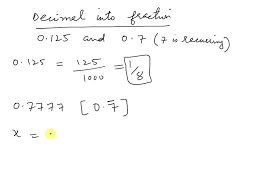 Decimel into fraction
0.125 and 0.7 (7 is recurring)
0.125 = 125/1000 = 1/8
0.7777 [0.7̄]
x = .